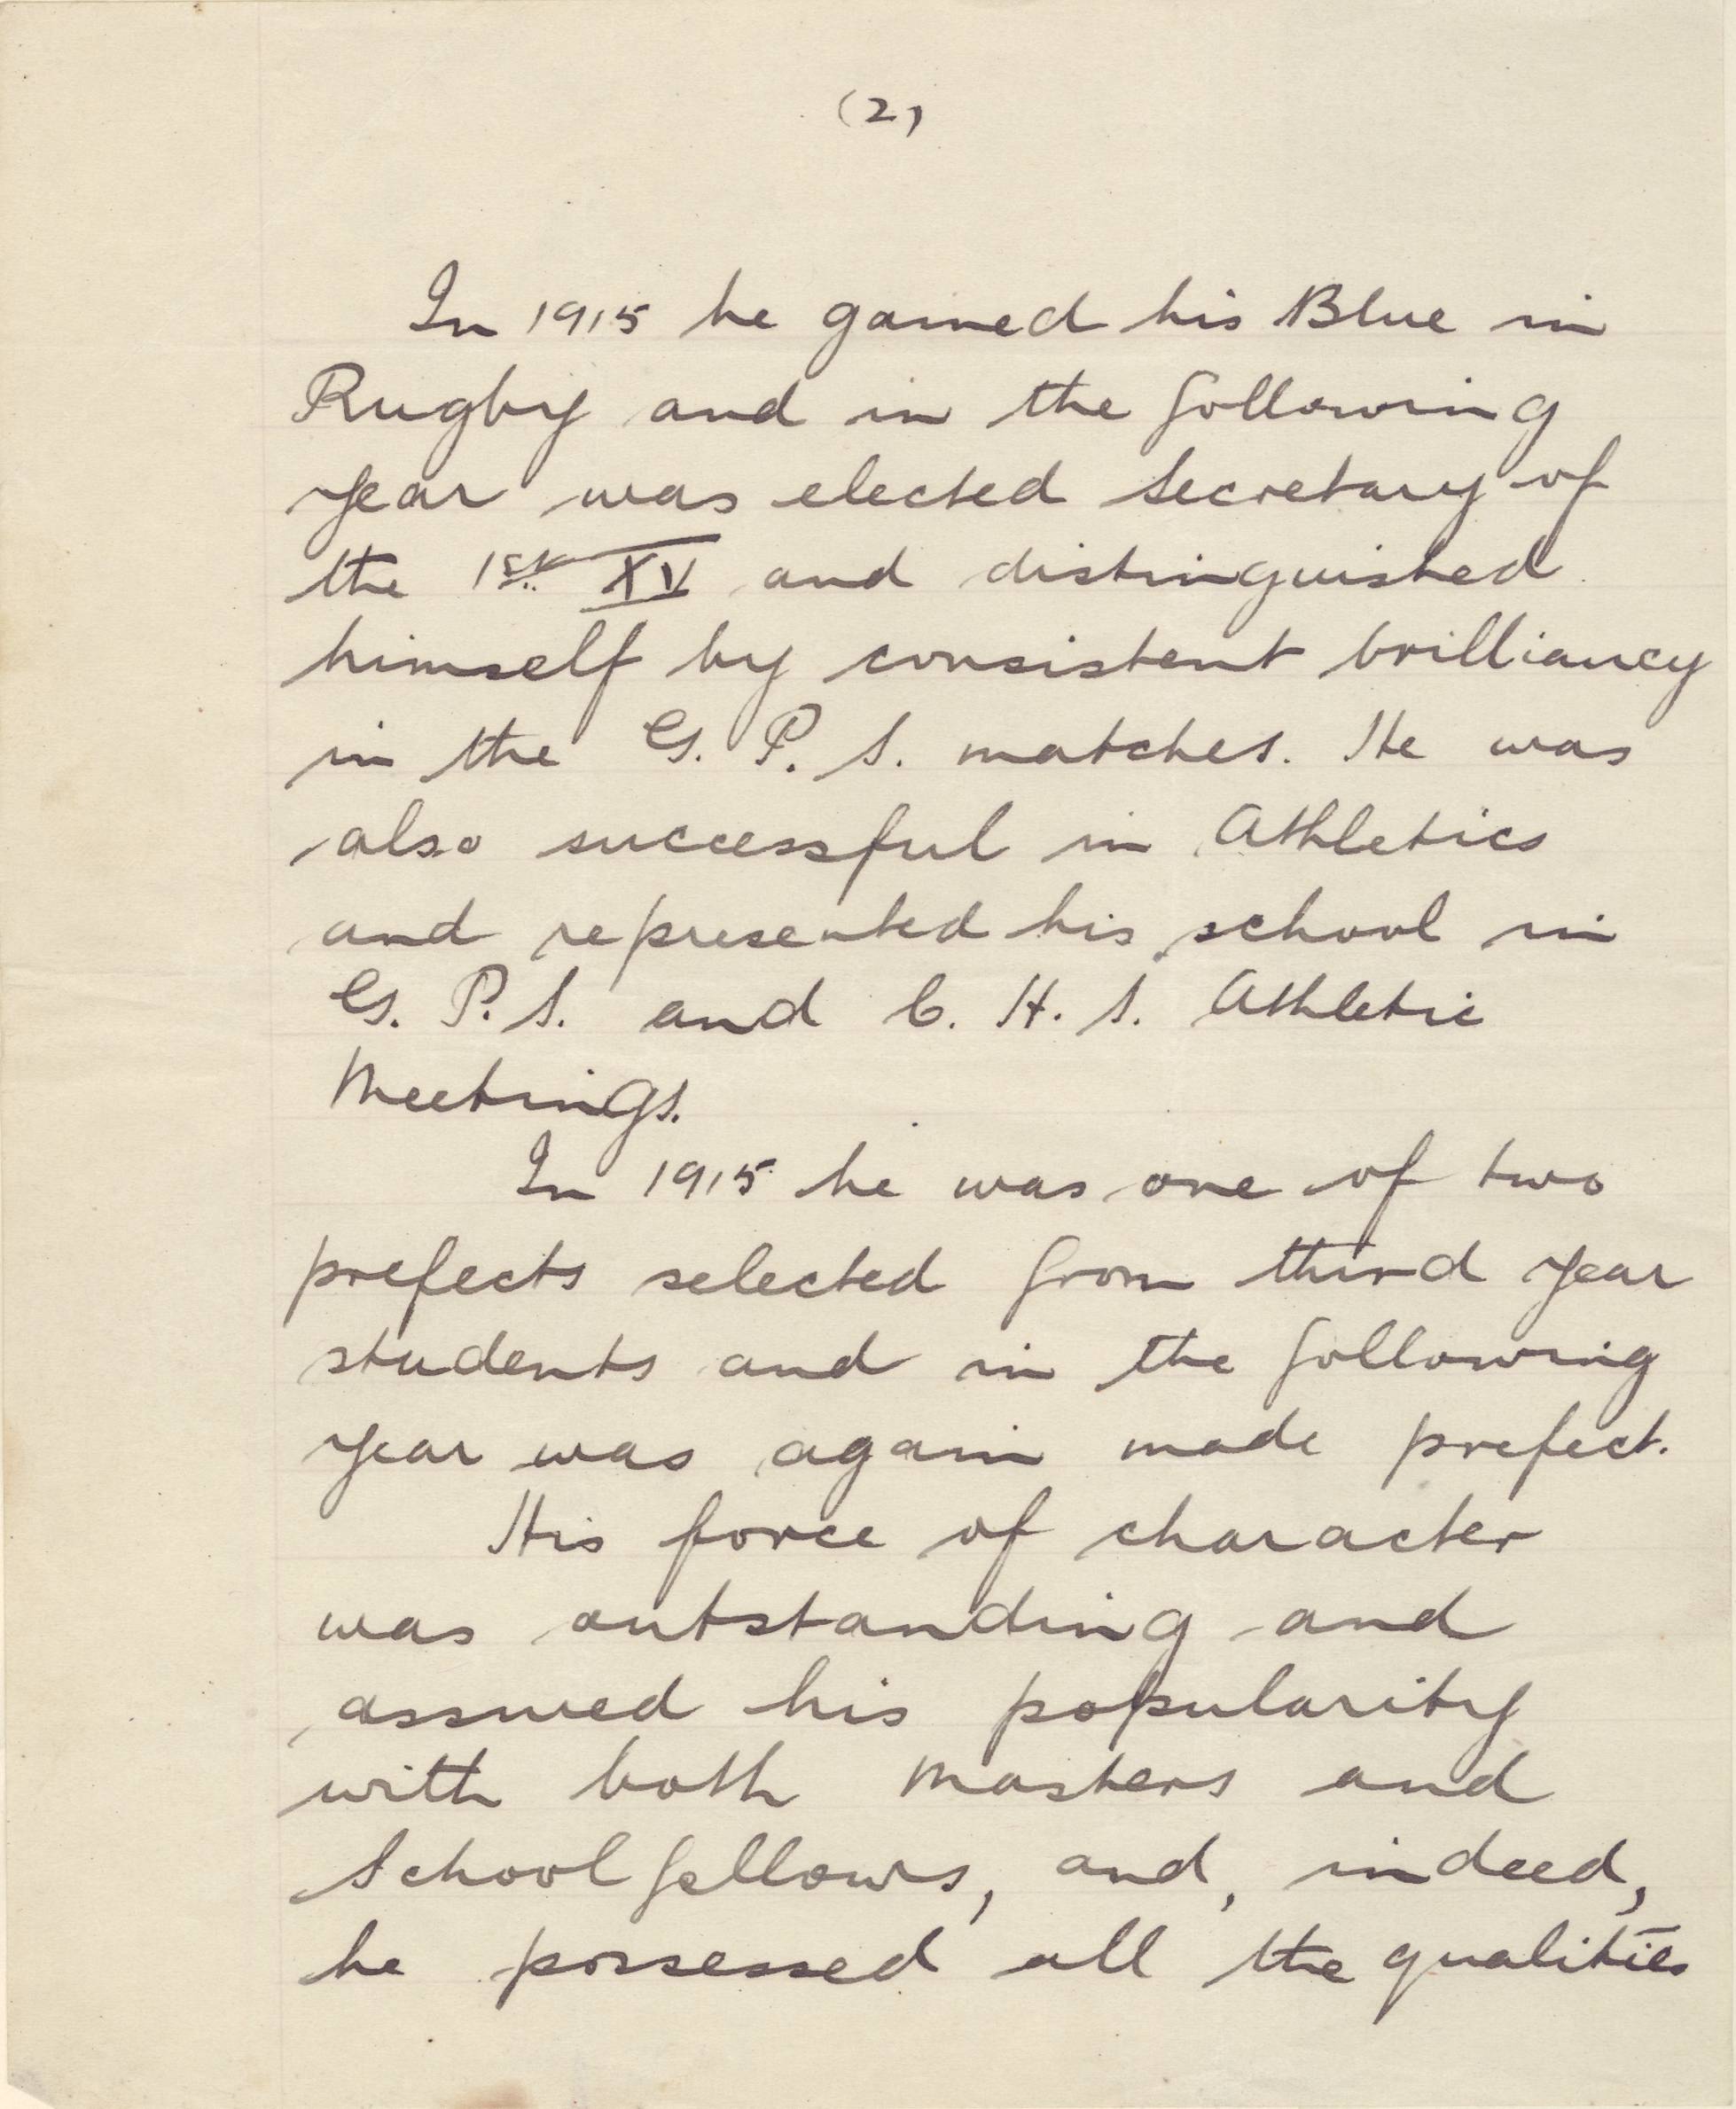 (2)
In 1915 he gained his Blue in
Rugby and in the following
year was elected Secretary of
the 1st XV and distinguished
himself by consistent brilliancy
in the G. P. S. matches. He was
also successful in Athletics
and represented his school in
G. P. S. and C. H. S. Athletic
Meetings.
In 1915 he was one of two
prefects selected from third year
students and in the following
year was again made prefect.
His force of character
was outstanding and
assured his popularity
with both masters and
Schoolfellows, and, indeed,
he possessed all the qualities